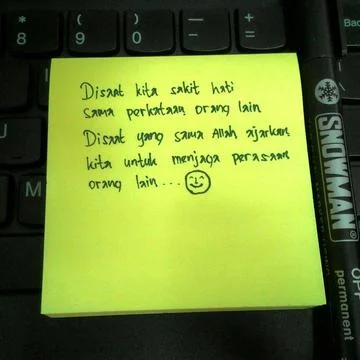 * 8
( 9
) 0
_ -
+ =
Bac
U
M
Disaat kita sakit hati
sama perkataan orang lain
Disaat yang sama Allah ajarkan
kita untuk menjaga perasaan
orang lain...
SNOWMAN
permanent